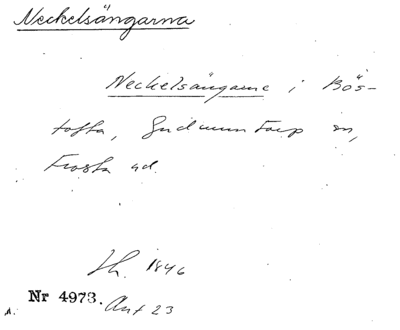 Neckelsängarna
Neckelsängarne i Bös-
tofta, Gudmuntorp sn,
Frosta hd.
Th. 1846
Nr 4973. Ant 23
A.